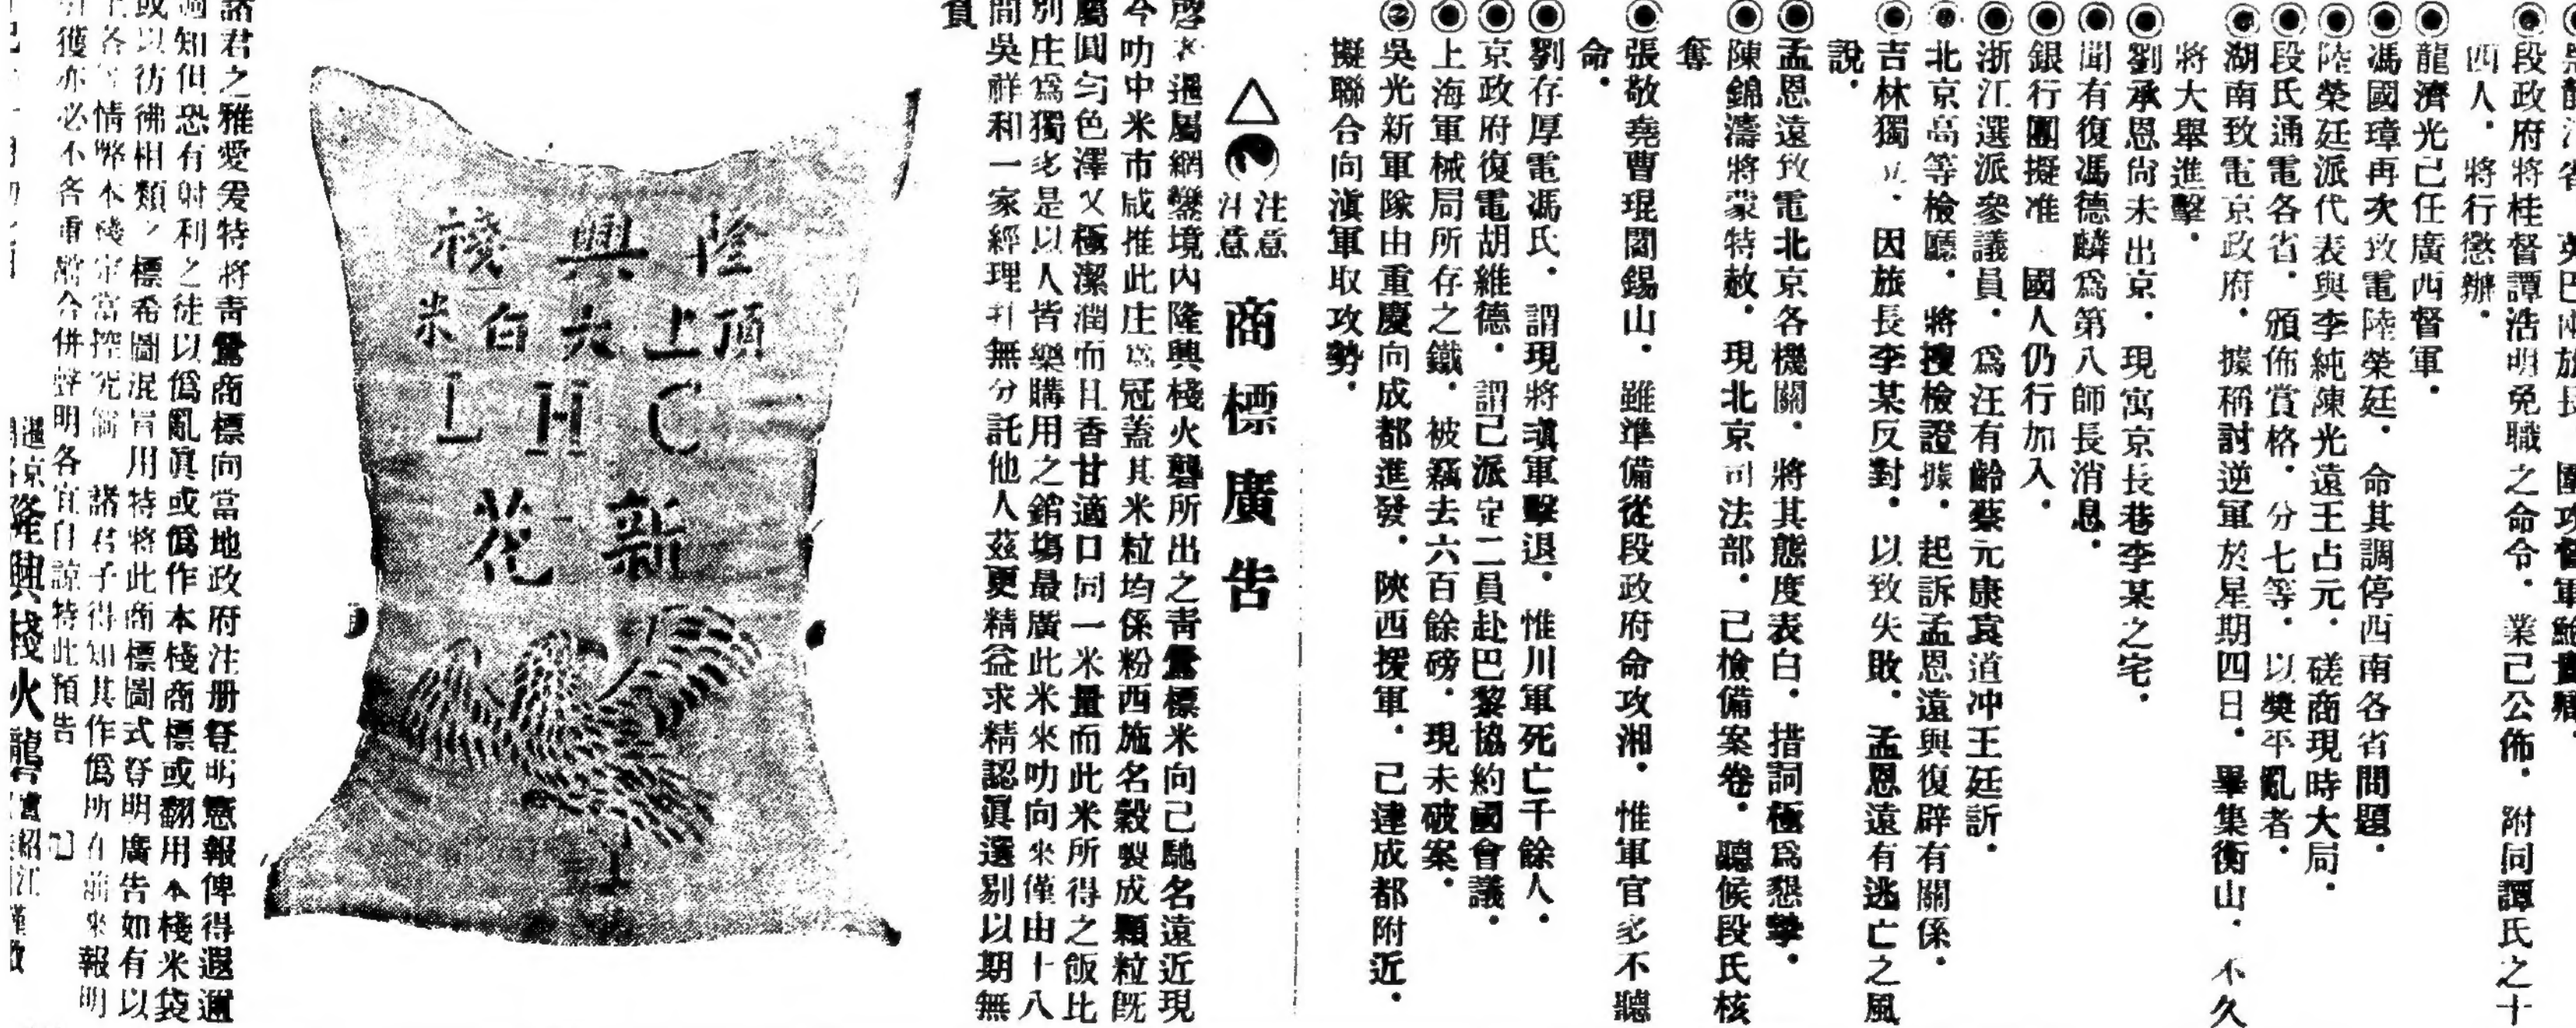 段政府將桂督譚浩明免職之命令．業已公佈．附同譚氏之十
四人．將行懲辦．
龍濟光已任廣西督軍．
馮國璋再次致電陸榮廷．命其調停西南各省問題．
陸榮廷派代表與李純陳光遠王占元．磋商現時大局．
段氏通電各省．頒佈賞格．分七等．以獎平亂者．
湖南致電京政府．據稱討逆軍於星期四日．畢集衡山．不久
將大舉進擊．
劉承恩尙未出京．現寓京長巷李某之宅．
聞有復馮德麟爲第八師長消息．
銀行團擬准 國人仍行加入．
浙江選派參議員．爲汪有齡蔡元康袁道冲王廷訢．
北京高等檢廳．將搜檢證據．起訴孟恩遠與復辟有關係．
吉林獨立．因旅長李某反對．以致失敗．孟恩遠有逃亡之風
說．
孟恩遠致電北京各機關．將其態度表白．措詞極爲懇摯．
陳錦濤將蒙特赦．現北京司法部．已檢備案卷．聽候段氏核
奪
張敬堯曹琨閻錫山．雖準備從段政府命攻湘．惟軍官多不聽
命．
劉存厚電馮氏．謂現將滇軍擊退．惟川軍死亡千餘人．
京政府復電胡維德．謂已派定二員赴巴黎協約國會議．
上海軍械局所存之鐵．被竊去六百餘磅．現未破案．
吳光新軍隊由重慶向成都進發．陝西援軍．已達成都附近．
擬聯合向滇軍取攻勢．
注意 注意 商標廣告
啓者暹屬網鑾境內隆興棧火礱所出之靑鴛標米向已馳名遠近現
今叻中米市咸推此庄爲冠蓋其米粒均係粉西施名穀製成顆粒旣
屬圓勻色澤又極潔潤而且香甘適口同一米量而此米所得之飯比
別庄爲獨多是以人皆樂購用之銷塲最廣此米來叻向來僅由十八
間吳祥和一家經理幷無分託他人茲更精益求精認眞選剔以期無
負
隆興棧
頂上大白米
C H L
新花
諸君之雅愛爰特將靑鴛商標向當地政府注册登明憲報俾得遐邇
週知但恐有射利之徒以僞亂眞或僞作本棧商標或翻用本棧米袋
或以彷彿相類之標希圖混冒用特將此商標圖式登明廣告如有以
上各等情弊本棧定當控究倘 諸君子得知其作僞所在前來報明
獲亦必不吝重酧合併聲明各宜自諒特此預告
暹京 隆興棧火礱